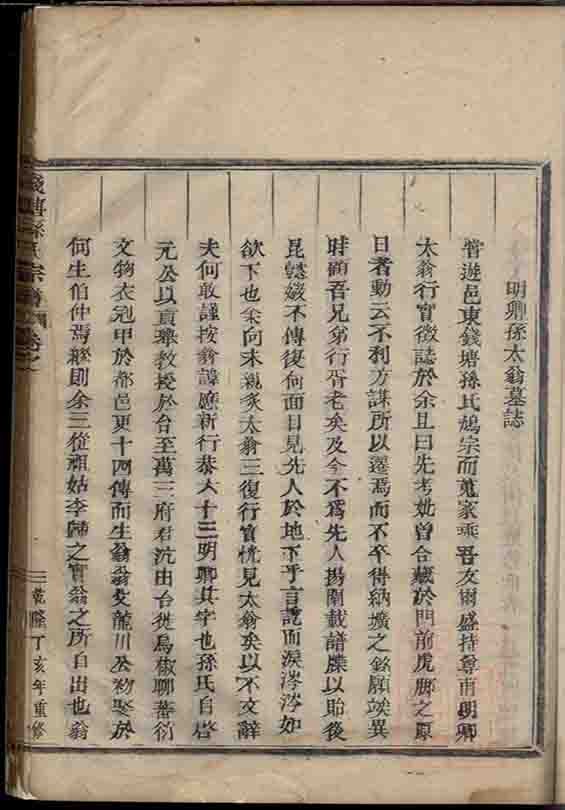 明卿孫太翁墓誌
嘗遊邑東錢塘孫氏鳩宗而蒐家乘吾友爾盛持尊甫明卿
太翁行實徵誌於余且曰先考妣曾合藏於門前虎脚之原
日者動云不利方謀所以遷焉而不卒得納壙之銘願俟異
時顧吾兄弟行胥老矣及今不為先人揚闡載譜牒以貽後
昆懿媺不傳復何面目見先人於地下乎言訖而淚涔涔如
欲下也余向未親炙太翁三復行實恍見太翁矣以不文辭
夫何敢謹按翁諱應新行恭六十三明卿其字也孫氏自啓
元公以直舉教授於台至萬三府君沆由台徙烏椒聊蕃衍
文物衣冠甲於都邑更十四傳而生翁翁父龍川公初娶於
何生伯仲焉繼則余三從祖姑李歸之實翁之所自出也翁
錢塘孫氏宗譜 卷之
乾隆丁亥年重修